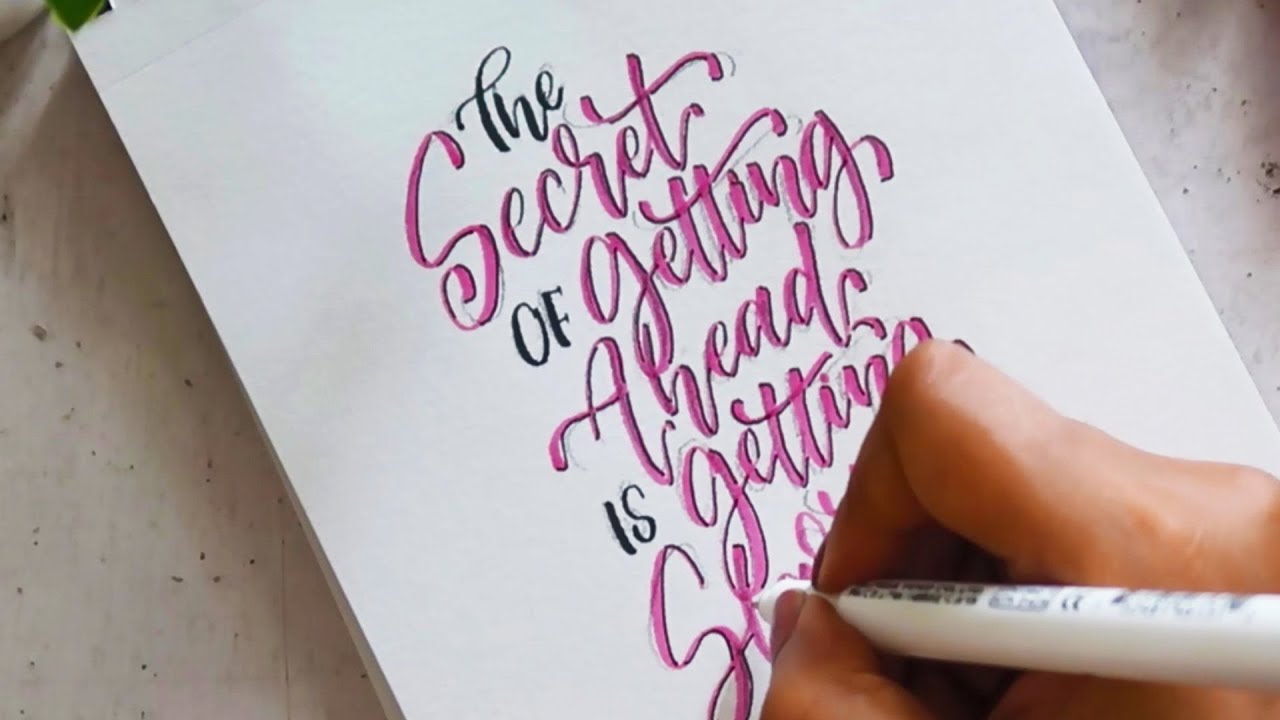 The
Secret
OF getting
Ahead
IS getting